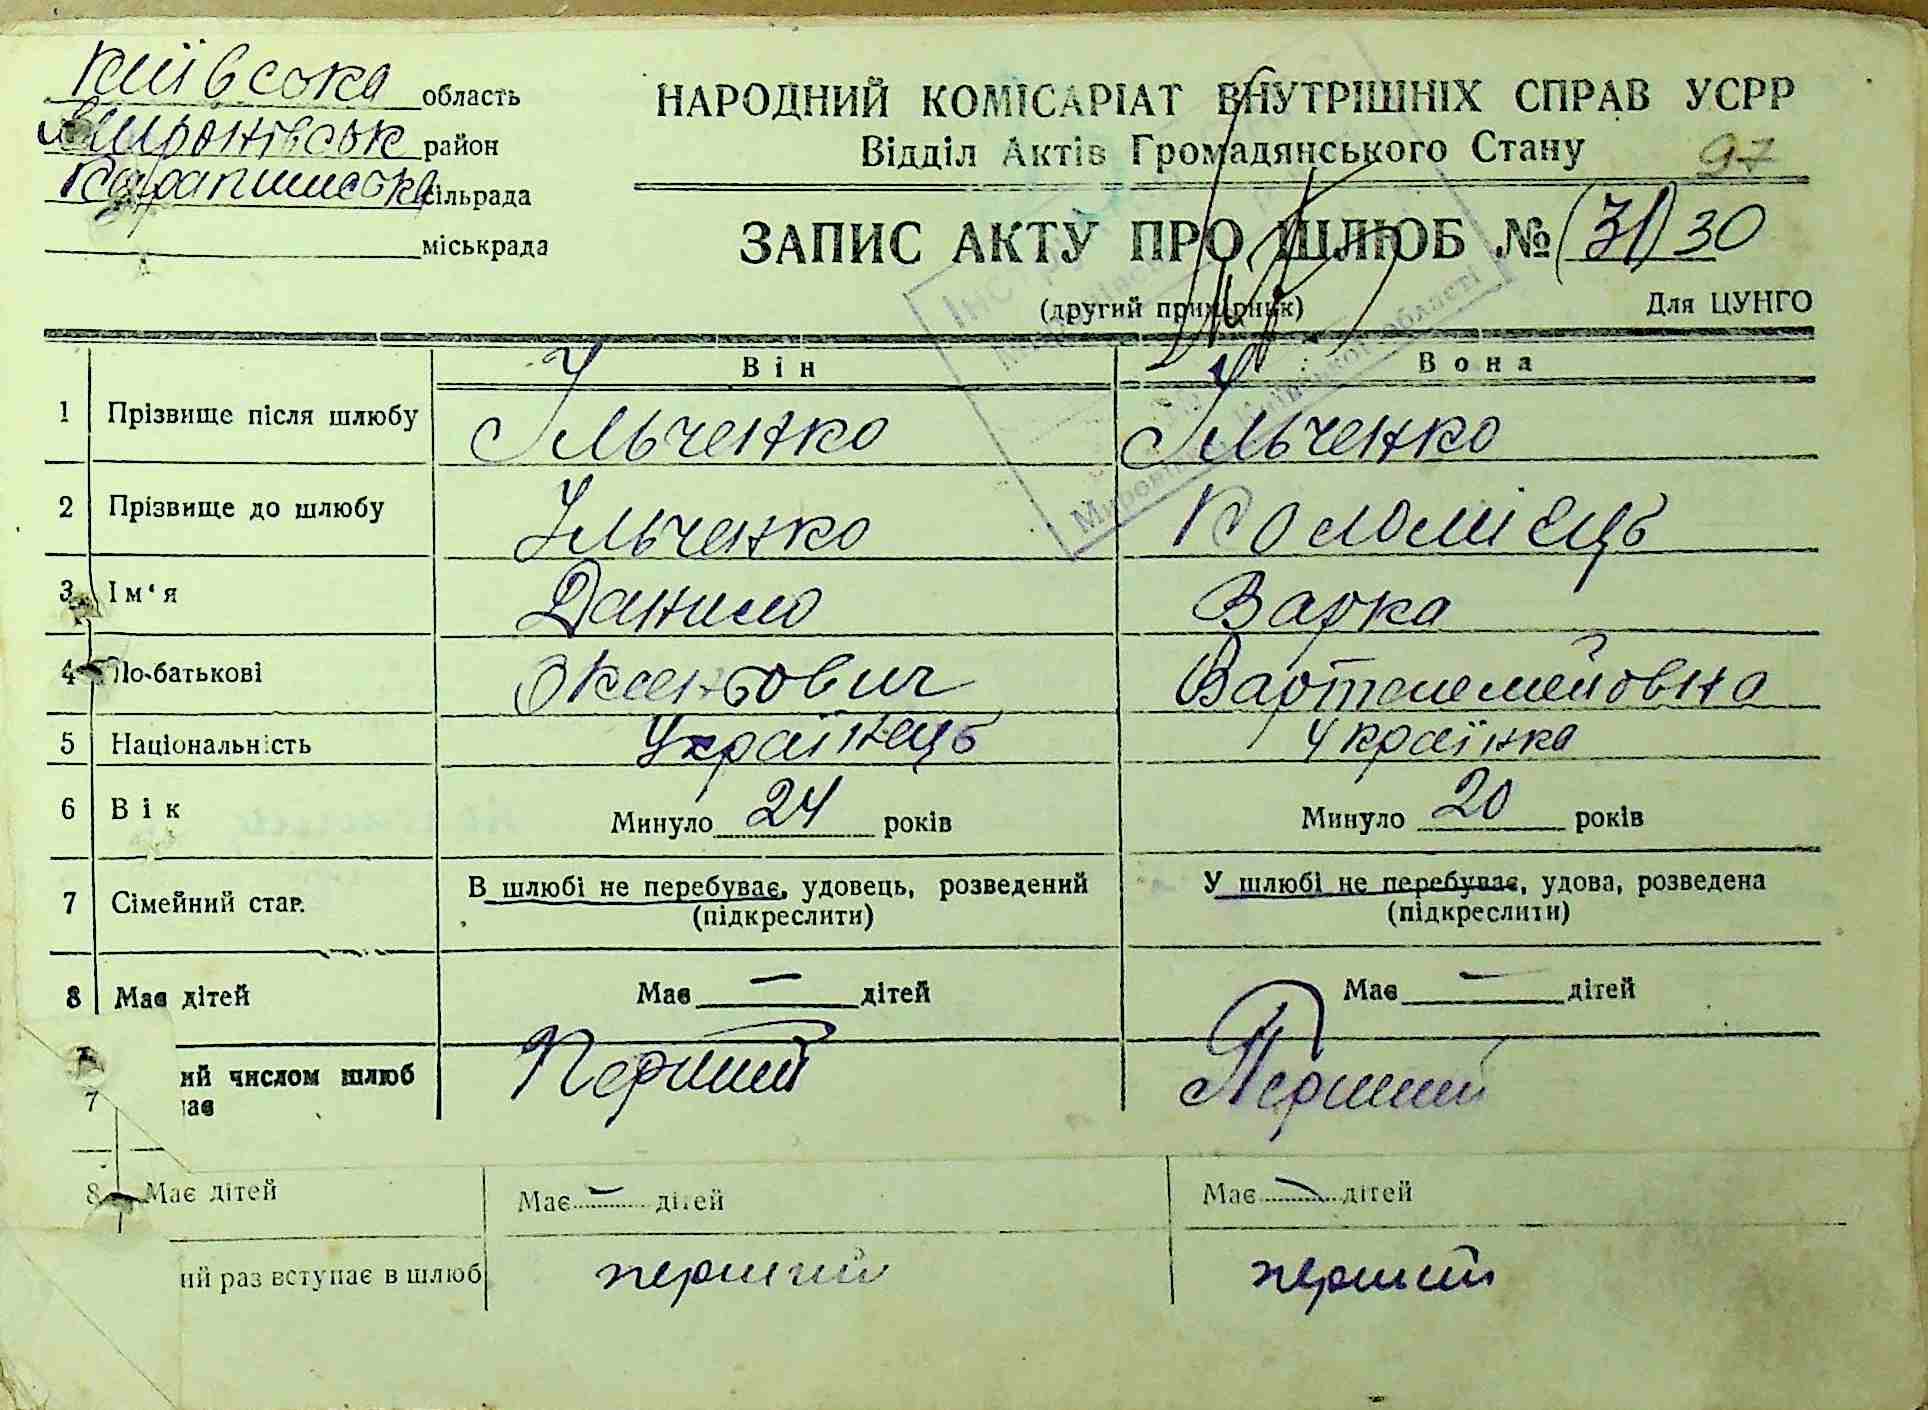 Київська область
Миронівськ район
Карапишська сільрада
міськрада
НАРОДНИЙ КОМІСАРІАТ ВНУТРІШНІХ СПРАВ УСРР
Відділ Актів Громадянського Стану
97
ЗАПИС АКТУ ПРО ШЛЮБ № (31) 30
(другий примірник) Для ЦУНГО
Він Вона
1 Прізвище після шлюбу Ільченко Ільченко
2 Прізвище до шлюбу Ільченко Коломієць
3 Ім‘я Данило Варка
4 По-батькові Оксентович Вартоломейовна
5 Національність Українець Українка
6 Вік Минуло 24 років Минуло 20 років
7 Сімейний стан. В шлюбі не перебуває, удовець, розведений У шлюбі не перебуває, удова, розведена
(підкреслити) (підкреслити)
8 Має дітей Має — дітей Має — дітей
ий числом шлюб Перший Перший
7 ає
8 Має дітей Має — дітей Має — дітей
ий раз вступає в шлюб перший перший